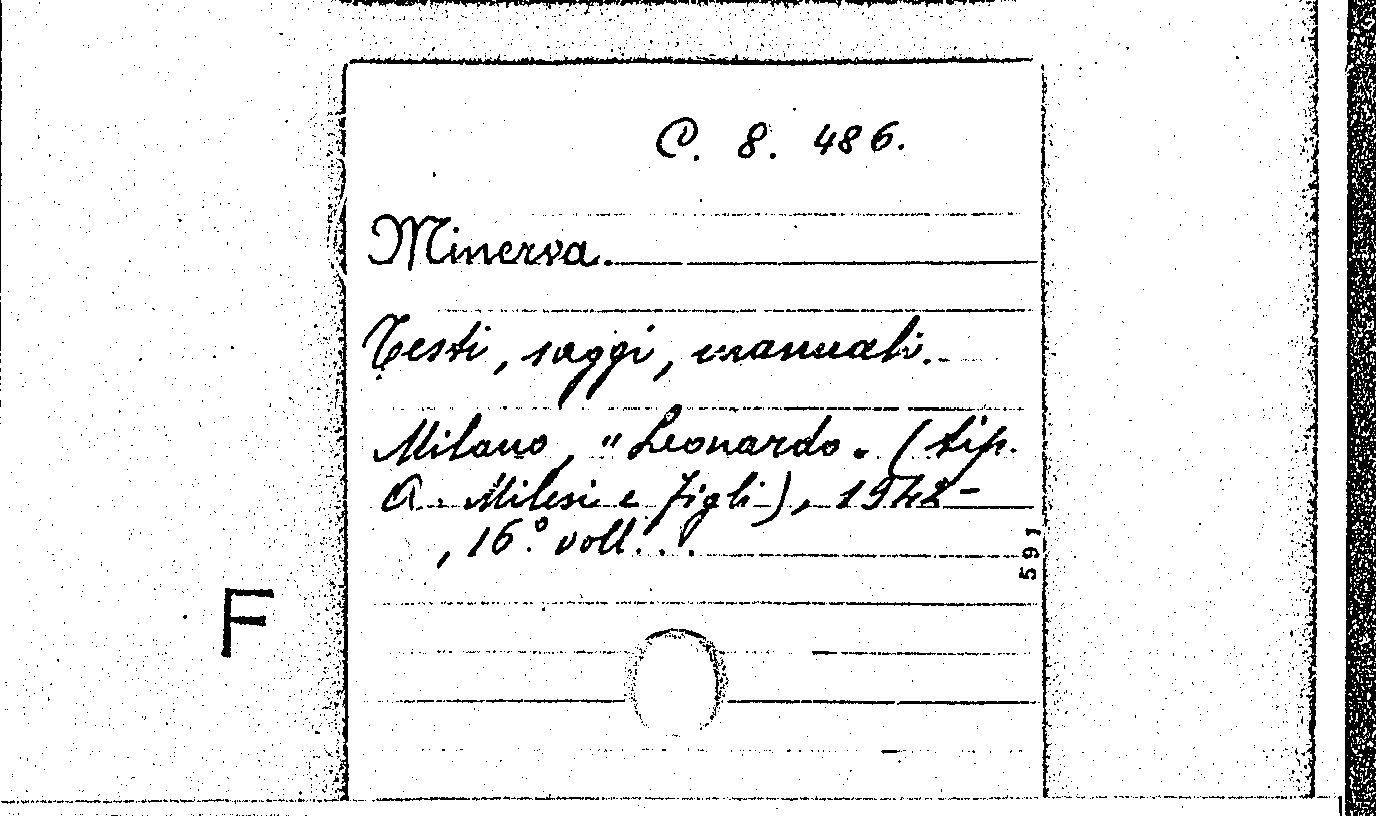 C. 8. 486.
Minerva.
Testi, saggi, manuali.
Milano, "Leonardo. (tip.
A. Milesi e figli), 1942-
, 16.° voll...
591
F